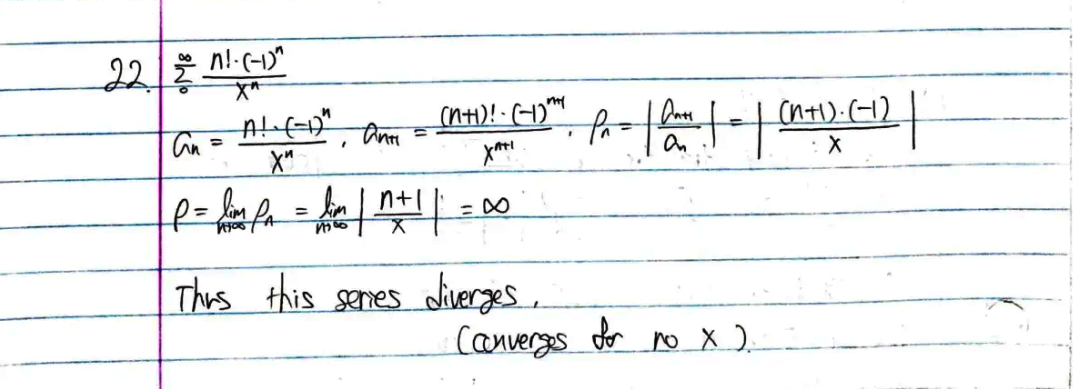 22. ∞ Σ 0 n!·(-1)ⁿ / xⁿ
aₙ = n!·(-1)ⁿ / xⁿ , aₙ₊₁ = (n+1)!·(-1)ⁿ⁺¹ / xⁿ⁺¹ , ρₙ = | aₙ₊₁ / aₙ | = | (n+1)·(-1) / x |
ρ = lim n→∞ ρₙ = lim n→∞ | n+1 / x | = ∞
Thus this series diverges.
(converges for no x).